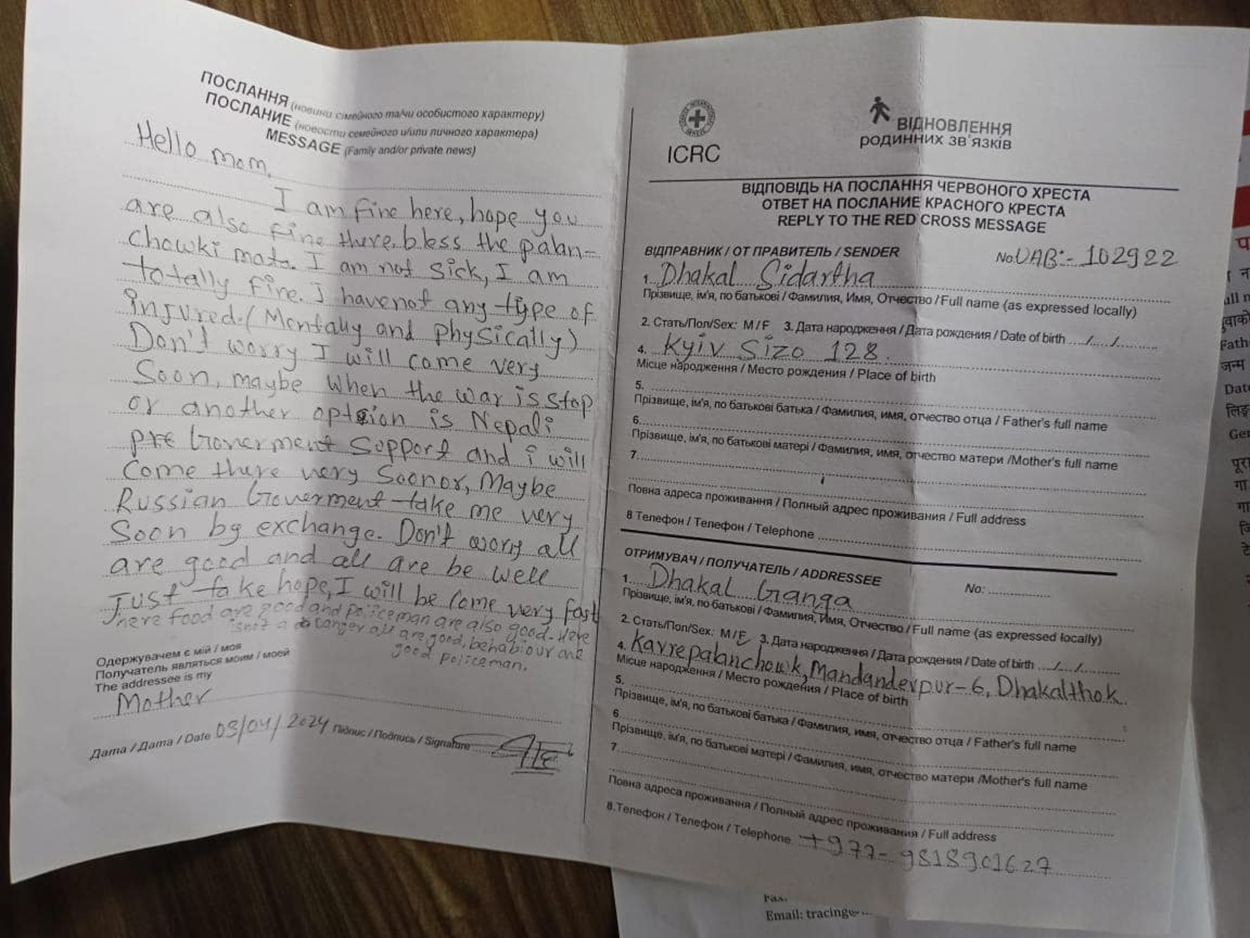 ПОСЛАННЯ (новини сімейного та/чи особистого характеру)
ПОСЛАНИЕ (новости семейного и/или личного характера)
MESSAGE (Family and/or private news)
Hello mom,
I am fine here, hope you
are also fine there. bless the palan-
chowki mata. I am not sick, I am
totally fine. I have not any type of
injured. (Mentally and physically)
Don't worry I will come very
Soon, maybe when the war is stop
or another option is Nepali
Goverment Support and i will
come there very Sooner, Maybe
Russian Goverment take me very
Soon by exchange. Don't wory all
are good and all are be well
Just take hope, I will be come very fast
here food are good and policeman are also good. Here
isnot a danger all are good, behaviour are
good policeman.
Одержувачем є мій / моя
Получатель являться моим / моей
The addressee is my
Mother
Дата / Дата / Date 09/04/2024 Підпис / Подпись / Signature
ICRC
ВІДНОВЛЕННЯ
РОДИННИХ ЗВ'ЯЗКІВ
ВІДПОВІДЬ НА ПОСЛАННЯ ЧЕРВОНОГО ХРЕСТА
ОТВЕТ НА ПОСЛАНИЕ КРАСНОГО КРЕСТА
REPLY TO THE RED CROSS MESSAGE
ВІДПРАВНИК / ОТ ПРАВИТЕЛЬ / SENDER No: UAB:- 102922
1. Dhakal Sidartha
Прізвище, ім'я, по батькові / Фамилия, Имя, Отчество / Full name (as expressed locally)
2. Стать/Пол/Sex: M / F 3. Дата народження / Дата рождения / Date of birth .../.../...
4. Kyiv Sizo 128.
Місце народження / Место рождения / Place of birth
5.
Прізвище, ім'я, по батькові батька / Фамилия, имя, отчество отца / Father's full name
6.
Прізвище, ім'я, по батькові матері / Фамилия, имя, отчество матери /Mother's full name
7.
Повна адреса проживання / Полный адрес проживания / Full address
8 Телефон / Телефон / Telephone
ОТРИМУВАЧ / ПОЛУЧАТЕЛЬ / ADDRESSEE No:
1. Dhakal Ganga
Прізвище, ім'я, по батькові/ Фамилия, Имя, Отчество / Full name (as expressed locally)
2. Стать/Пол/Sex: M / F 3. Дата народження / Дата рождения / Date of birth .../.../...
4. Kavrepalanchowk, Mandandevpur-6, Dhakalthok.
Місце народження / Место рождения / Place of birth
5.
Прізвище, ім'я, по батькові батька / Фамилия, имя, отчество отца / Father's full name
6.
Прізвище, ім'я, по батькові матері / Фамилия, имя, отчество матери /Mother's full name
7.
Повна адреса проживання / Полный адрес проживания / Full address
8.Телефон / Телефон / Telephone +977-9818901627
Email: tracing